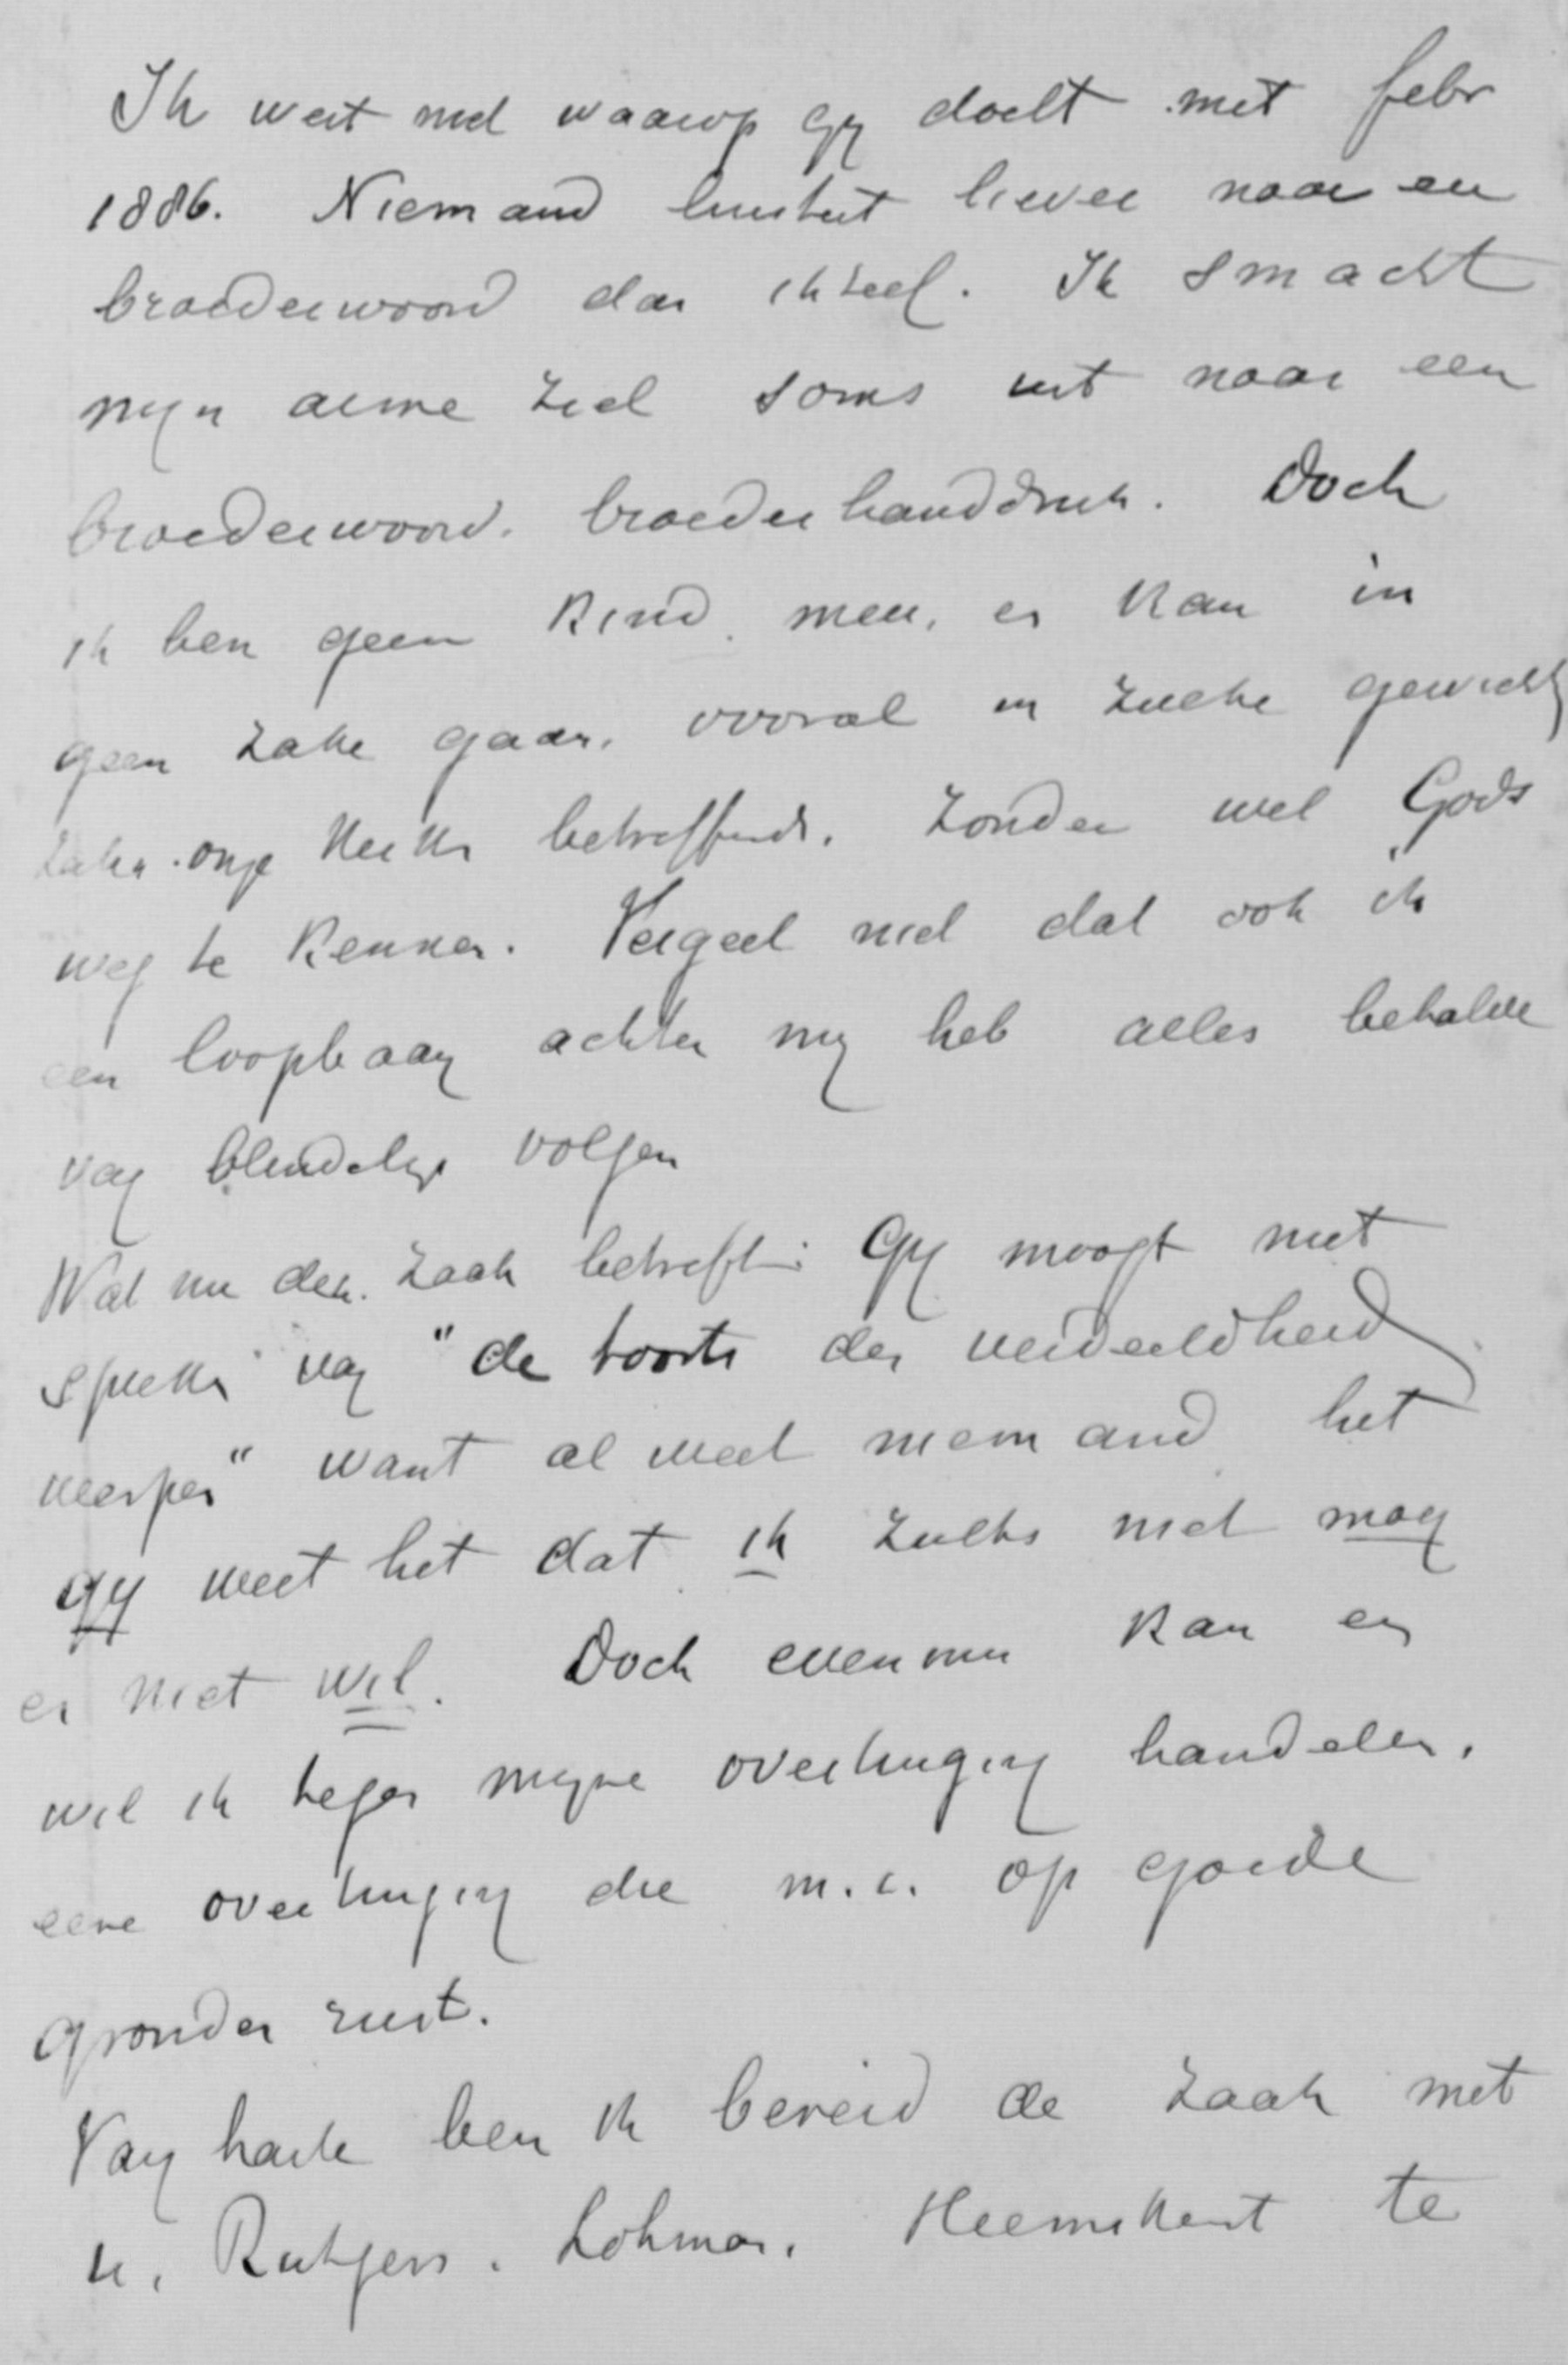 Ik weet niet waarop gy doelt met febr
1886. Niemand luistert liever naar een
broederwoord dan ik zelf. Ik smacht
myn arme ziel soms uit naar een
broederwoord. broederhanddruk. Doch
ik ben geen kind. men, er kan in
geen zake gaan, vooral in zulke gewicht
zaken onze Kerk betreffende, zonder wel Gods
weg te kennen. Vergeet niet dat ook ik
een loopbaan achter my heb alles behalve
van blindelings volgen
Wat nu deze zaak betreft: Gy moogt niet
spreken van "de toorts der verdeeldheid
werpen" want al weet niemand het
gy weet het dat ik zulks niet mag
en niet wil. Doch evenmin kan en
wil ik tegen myne overtuiging handelen,
eene overtuiging die m.i. op goede
gronden rust.
Van harte ben ik bereid de zaak met
u, Rutgers, Lohman, Heemskerk te